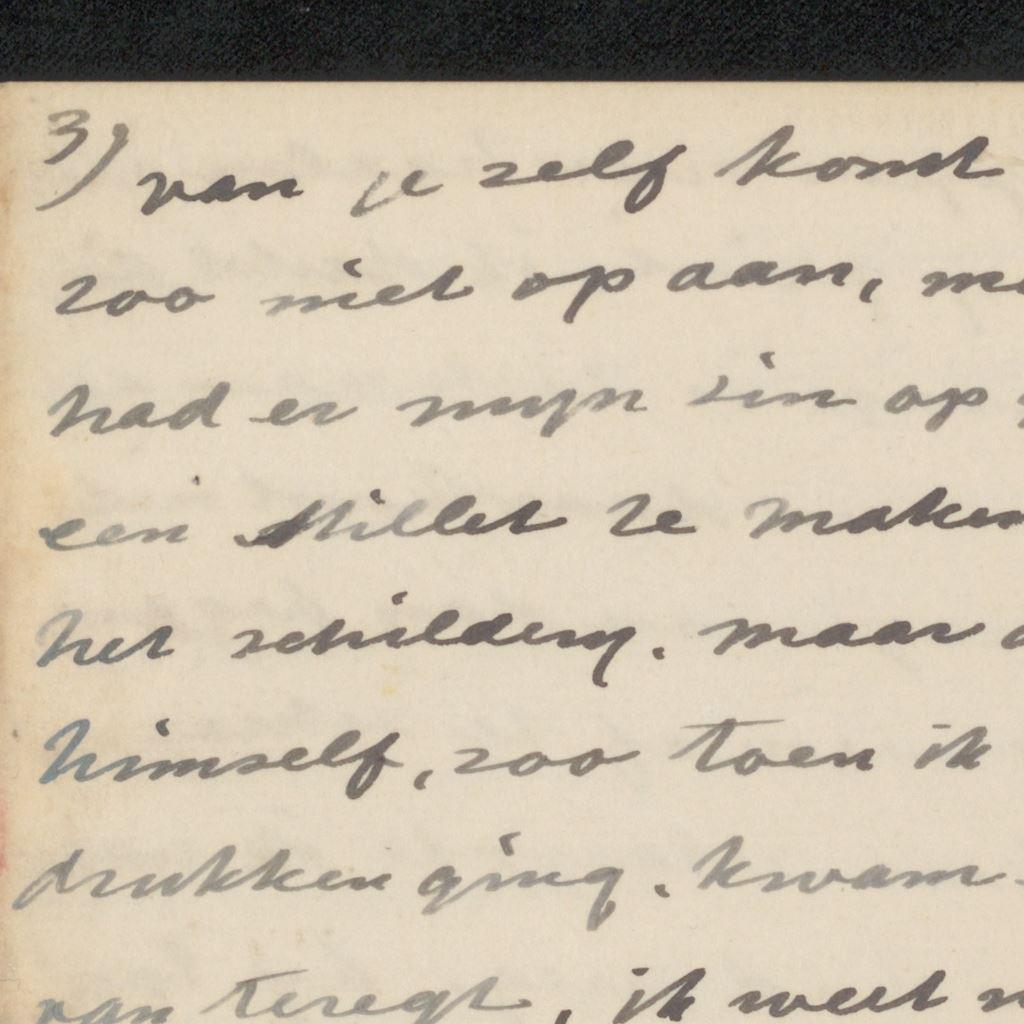 3) van je zelf komt
zoo niet op aan,
had er mijn zin op
een stillet te maken
het schildery. maar
himself, zoo toen ik
drukken ging. kwam
van teregt, ik weet